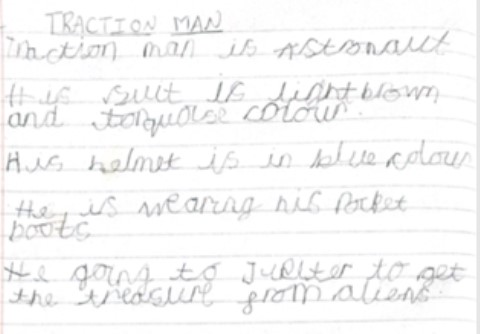 TRACTION MAN
Traction man is Astronaut
His suit is lightbrown
and torquoise colour.
His helmet is in blue colour
He is wearing his Rocket
boots
He going to Jupiter to get
the treasure from aliens.